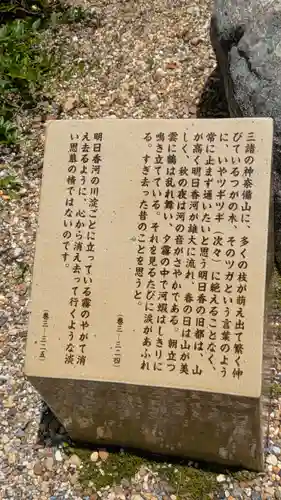 三諸の神奈備山に、多くの枝が萌え出て繁く伸
びているつがの木、そのツガという言葉のよう
にいやツギツギ（次々）に絶えることなく、
常に止まず通いたいと思う明日香の旧都は、山
が高く明日香河が雄大に流れ、春の日は山が美
しく、秋の夜は河の音がさやかである。朝立つ
雲に鶴は乱れ舞い、夕霧の中で河蝦はしきりに
鳴き立てている。それを見るたびに涙があふれ
る。すぎ去った昔のことを思うと。
（巻三・三二四）
明日香河の川淀ごとに立っている霧のやがて消
え去るように、心から消え去って行くような淡
い思慕の情ではないのです。
（巻三・三二五）